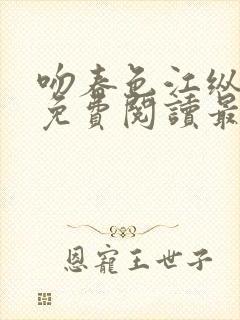 吻春色江纵
免費閱讀最
恩寵王世子